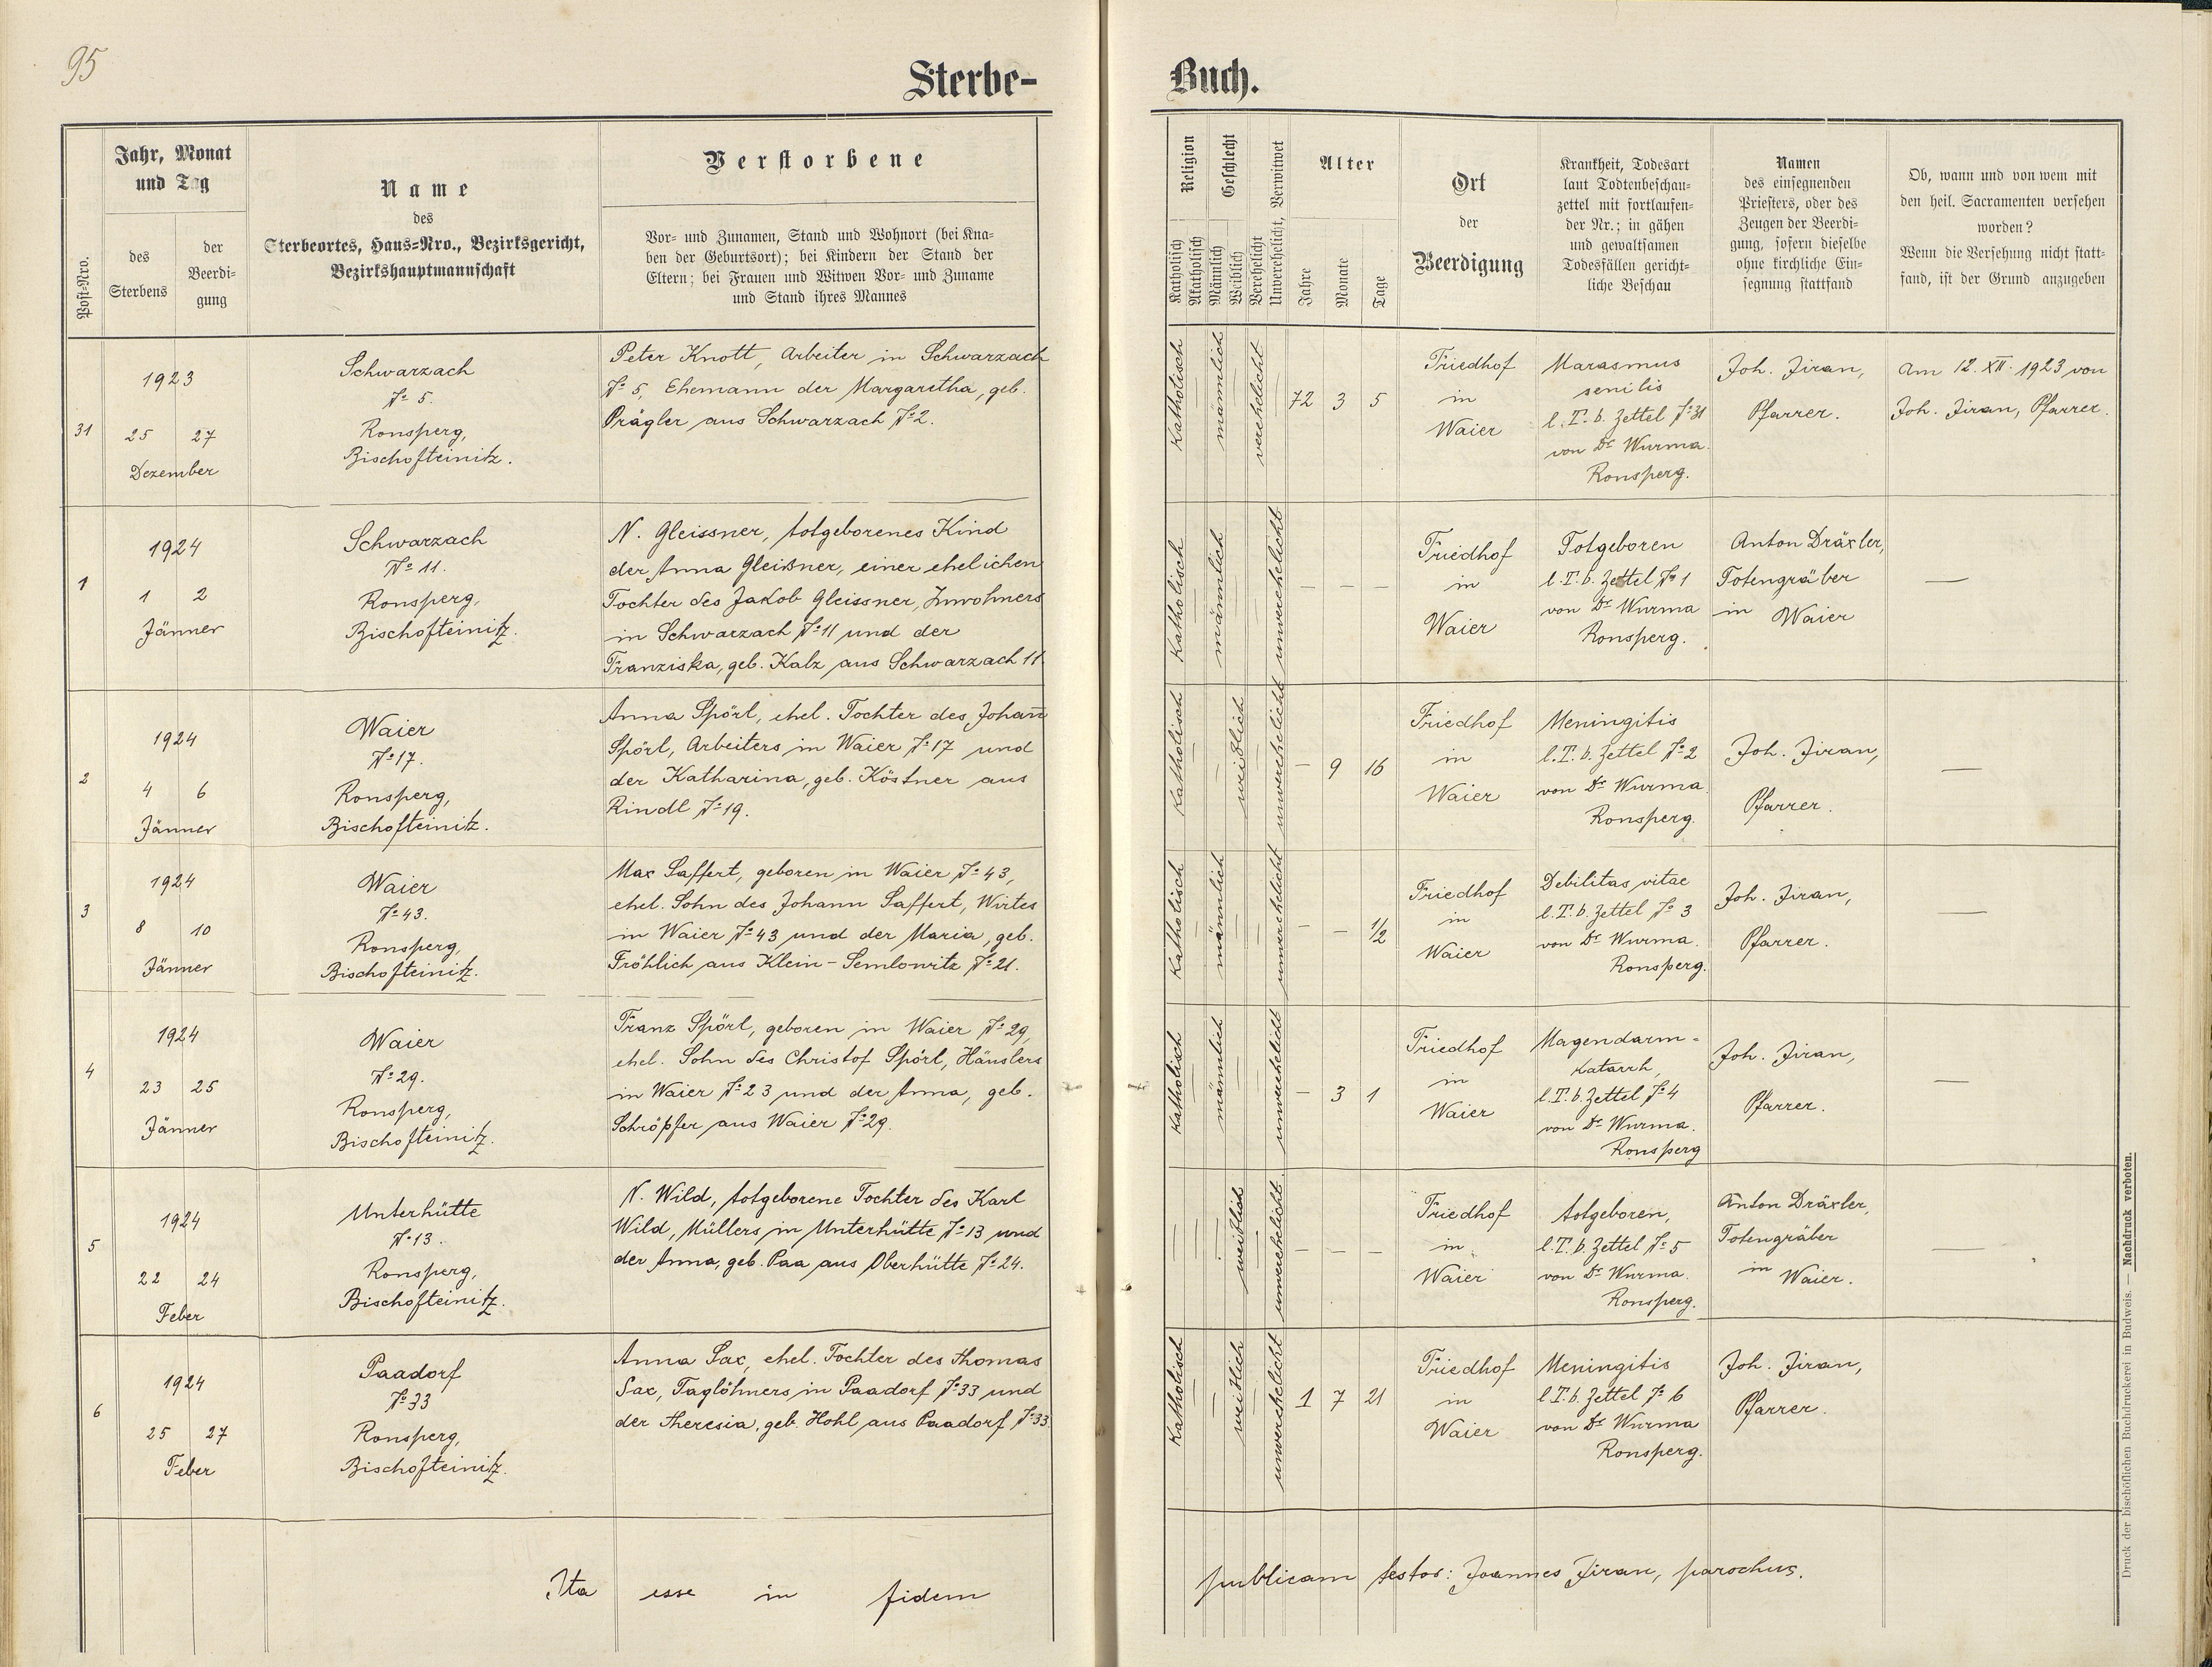 95
Sterbe-
Buch.
Post-Nro.
Jahr, Monat
und Tag
des
Sterbens
der
Beerdi-
gung
Name
des
Sterbeortes, Haus-Nro., Bezirksgericht,
Bezirkshauptmannschaft
Verstorbene
Vor- und Zunamen, Stand und Wohnort (bei Kna-
ben der Geburtsort); bei Kindern der Stand der
Eltern; bei Frauen und Witwen Vor- und Zuname
und Stand ihres Mannes
Religion
Katholisch
Akatholisch
Geschlecht
Männlich
Weiblich
Verehelicht
Unverehelicht, Verwitwet
Alter
Jahre
Monate
Tage
Ort
der
Beerdigung
Krankheit, Todesart
laut Todtenbeschau-
zettel mit fortlaufen-
der Nr.; in gähen
und gewaltsamen
Todesfällen gericht-
liche Beschau
Namen
des einsegnenden
Priesters, oder des
Zeugen der Beerdi-
gung, sofern dieselbe
ohne kirchliche Ein-
segnung stattfand
Ob, wann und von wem mit
den heil. Sacramenten versehen
worden?
Wenn die Versehung nicht statt-
fand, ist der Grund anzugeben
31
1923
25 27
Dezember
Schwarzach
№ 5.
Ronsperg,
Bischofteinitz.
Peter Knott, Arbeiter in Schwarzach
№ 5, Ehemann der Margaretha, geb.
Prägler aus Schwarzach № 2.
Katholisch
männlich
verehelicht
72 3 5
Friedhof
in
Waier
Marasmus
senilis
l. T. b. Zettel № 31
von Dr Wurma
Ronsperg.
Joh. Jiran,
Pfarrer.
Am 12. XII. 1923 von
Joh. Jiran, Pfarrer.
1
1924
1 2
Jänner
Schwarzach
№ 11.
Ronsperg,
Bischofteinitz.
N. Gleissner, totgeborenes Kind
der Anna Gleißner, einer ehelichen
Tochter des Jakob Gleissner, Inwohners
in Schwarzach № 11 und der
Franziska, geb. Kalz aus Schwarzach 11.
Katholisch
männlich
unverehelicht
– – –
Friedhof
in
Waier
Totgeboren
l. T. b. Zettel № 1
von Dr Wurma
Ronsperg.
Anton Dräxler,
Totengräber
in Waier
—
2
1924
4 6
Jänner
Waier
№ 17.
Ronsperg,
Bischofteinitz.
Anna Spörl, ehel. Tochter des Johan̅
Spörl, Arbeiters in Waier № 17 und
der Katharina, geb. Köstner aus
Rindl № 19.
Katholisch
weiblich
unverehelicht
– 9 16
Friedhof
in
Waier
Meningitis
l. T. b. Zettel № 2
von Dr Wurma
Ronsperg.
Joh. Jiran,
Pfarrer.
—
3
1924
8 10
Jänner
Waier
№ 43.
Ronsperg,
Bischofteinitz.
Max Saffert, geboren in Waier № 43,
ehel. Sohn des Johann Saffert, Wirtes
in Waier № 43 und der Maria, geb.
Fröhlich aus Klein-Semlowitz № 21.
Katholisch
männlich
unverehelicht
– – 1/2
Friedhof
in
Waier
Debilitas vitae
l. T. b. Zettel № 3
von Dr Wurma.
Ronsperg.
Joh. Jiran,
Pfarrer.
—
4
1924
23 25
Jänner
Waier
№ 29.
Ronsperg,
Bischofteinitz.
Franz Spörl, geboren in Waier № 29,
ehel. Sohn des Christof Spörl, Häuslers
in Waier № 23 und der Anna, geb.
Schröpfer aus Waier № 29.
Katholisch
männlich
unverehelicht
– 3 1
Friedhof
in
Waier
Magendarm-
katarrh,
l. T. b. Zettel № 4
von Dr Wurma.
Ronsperg
Joh. Jiran,
Pfarrer.
—
5
1924
22 24
Feber
Unterhütte
№ 13.
Ronsperg,
Bischofteinitz.
N. Wild, totgeborene Tochter des Karl
Wild, Müllers in Unterhütte № 13 und
der Anna, geb. Paa aus Oberhütte № 24.
weiblich
unverehelicht
– – –
Friedhof
in
Waier
totgeboren,
l. T. b. Zettel № 5
von Dr Wurma.
Ronsperg.
Anton Dräxler,
Totengräber
in Waier.
—
6
1924
25 27
Feber
Paadorf
№ 33
Ronsperg,
Bischofteinitz.
Anna Sax, ehel. Tochter des Thomas
Sax, Taglöhners in Paadorf № 33 und
der Theresia, geb. Hohl aus Paadorf № 33.
Katholisch
weiblich
unverehelicht
1 7 21
Friedhof
in
Waier
Meningitis
l. T. b. Zettel № 6
von Dr Wurma
Ronsperg.
Joh. Jiran,
Pfarrer.
Ita esse in fidem
publicam testor: Joannes Jiran, parochus.
Druck der bischöflichen Buchdruckerei in Budweis. — Nachdruck verboten.